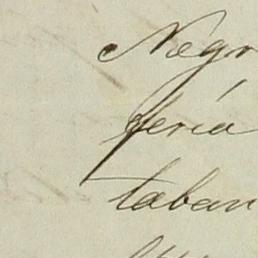 Negr
feria
taban